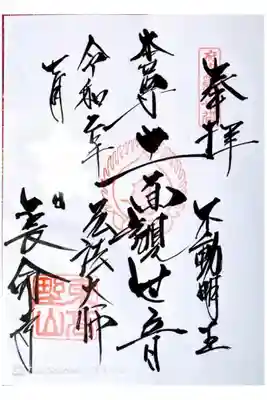 奉拝
不動明王
本尊十一面観世音
弘法大師
令和二年
長命寺